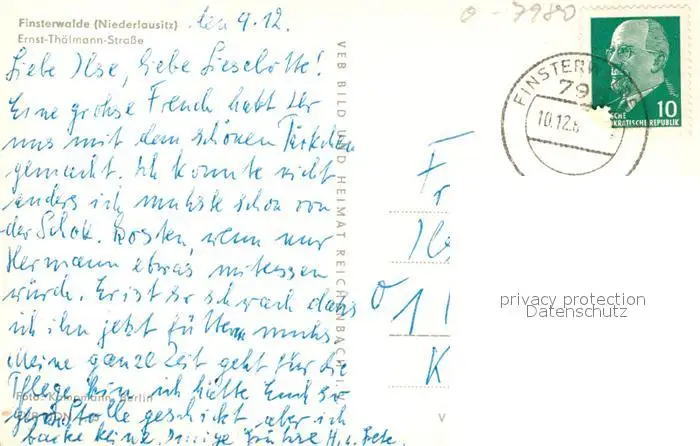 Finsterwalde (Niederlausitz)
Ernst-Thälmann-Straße
den 9.12.
Liebe Ilse, liebe Lieselotte!
Eine grohse Freude habt Ihr
uns mit dem schönen Päckchen
gemacht. Ich konnte nicht
anders ich muhste schon von
der Schok. kosten, wenn nur
Hermann etwas mitessen
würde. Er ist so schwach dahs
ich ihn jetzt füttern muhs.
Meine ganze Zeit geht für die
Pflege hin, ich hätte Euch so
gern Stolle geschickt, aber ich
backe keine. Innige Grühse H. u. Grete.
VEB BILD UND HEIMAT REICHENBACH I. V.
Foto: Kampmann, Berlin
0-7980
FINSTERW
79
10.12.6
10
DEUTSCHE
DEMOKRATISCHE REPUBLIK
Fr
Ils
0 1
K
V
privacy protection
Datenschutz